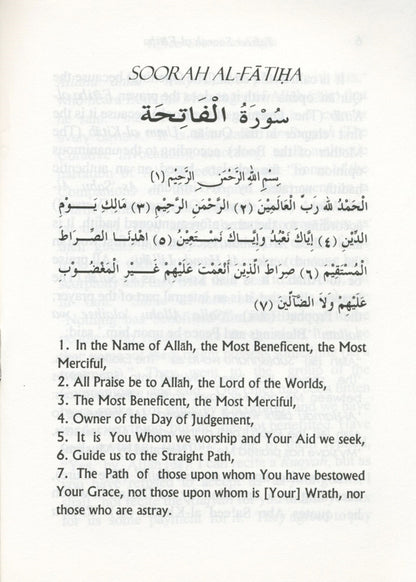 SOORAH AL-FĀTIḤA
سُورَةُ الْفَاتِحَة
بِسْمِ اللهِ الرَّحْمَنِ الرَّحِيْمِ (١)
الْحَمْدُ لله رَبِّ الْعَالَمِيْنَ (٢) الرَّحْمَنِ الرَّحِيْمِ (٣) مَالِكِ يَـــوْمِ
الدِّيْنِ (٤) إِيَّاكَ نَعْبُدُ وَإِيَّاكَ نَسْـتَعِيْنُ (٥) اهْدِنَــا الصِّــرَاطَ
الْمُسْتَقِيْمَ (٦) صِرَاطَ الَّذِيْنَ أَنْعَمْتَ عَلَيْهِمْ غَيْـرِ الْمَغْضُوْبِ
عَلَيْهِمْ وَلاَ الضَّآلِّيْنَ (٧)
1. In the Name of Allah, the Most Beneficent, the Most
Merciful,
2. All Praise be to Allah, the Lord of the Worlds,
3. The Most Beneficent, the Most Merciful,
4. Owner of the Day of Judgement,
5. It is You Whom we worship and Your Aid we seek,
6. Guide us to the Straight Path,
7. The Path of those upon whom You have bestowed
Your Grace, not those upon whom is [Your] Wrath, nor
those who are astray.